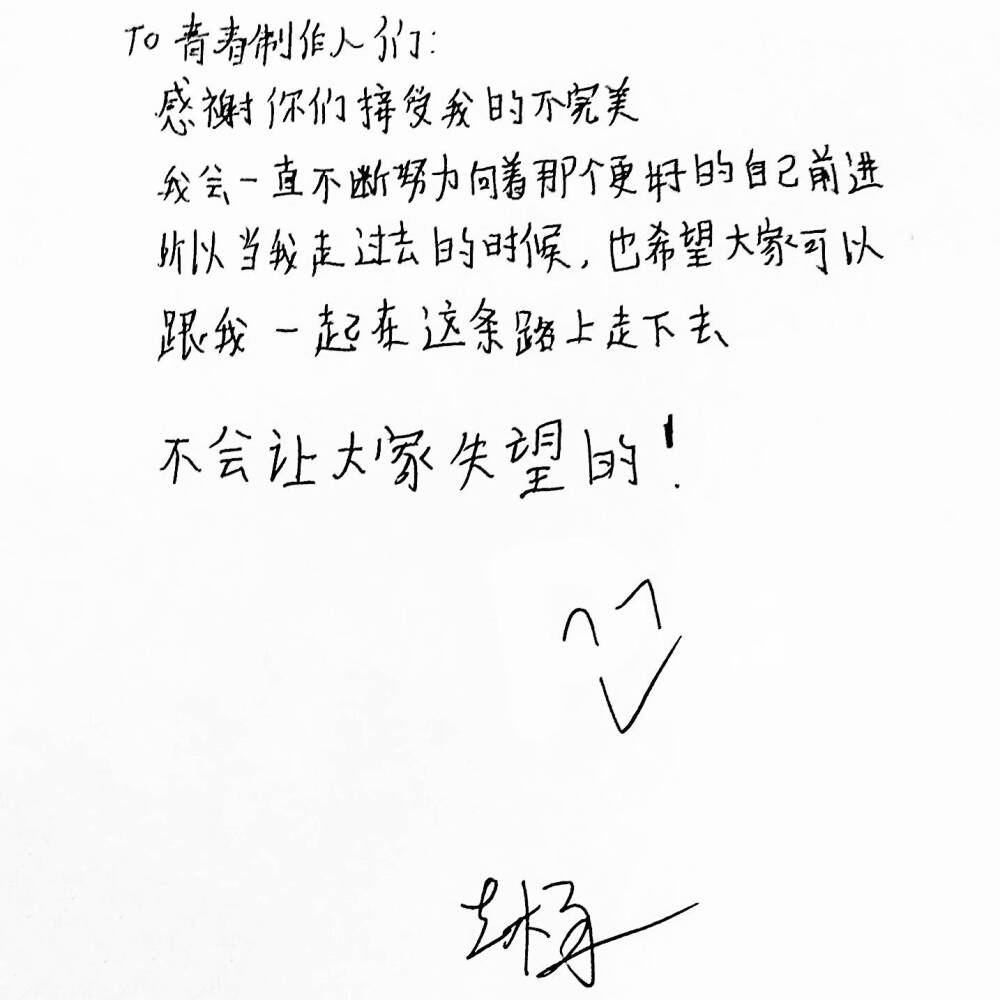 TO 青春制作人们:
感谢你们接受我的不完美
我会一直不断努力向着那个更好的自己前进
所以当我走过去的时候,也希望大家可以
跟我一起在这条路上走下去
不会让大家失望的!